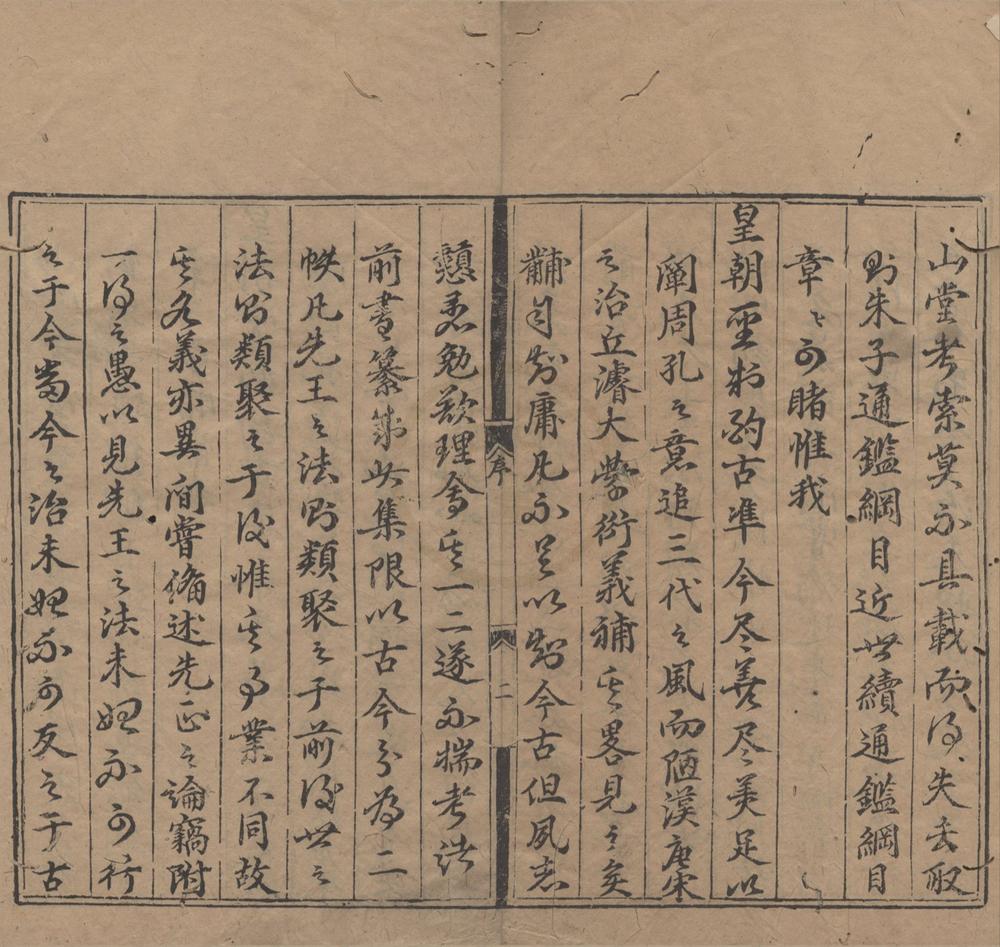 山堂考索莫不具載而得失去取
則朱子通鑑綱目近世續通鑑綱目
章〻可睹惟我
皇朝聖制酌古準今尽善尽美足以
闡周孔之意追三代之風而陋漢唐宋
之治丘濬大學衍義補其畧見之矣
黼自庸凡不足以今古但夙志
序
二
愚勉欲理會其一二遂不揣考諸
前書纂此集限以古今分為二
帙凡先王之法則類聚之于前後世之
法則類聚之于後惟其事業不同故
其名義亦異間嘗備述先正之論竊附
一得之愚以見先王之法未始不可行
之于今當今之治未始不可反之于古